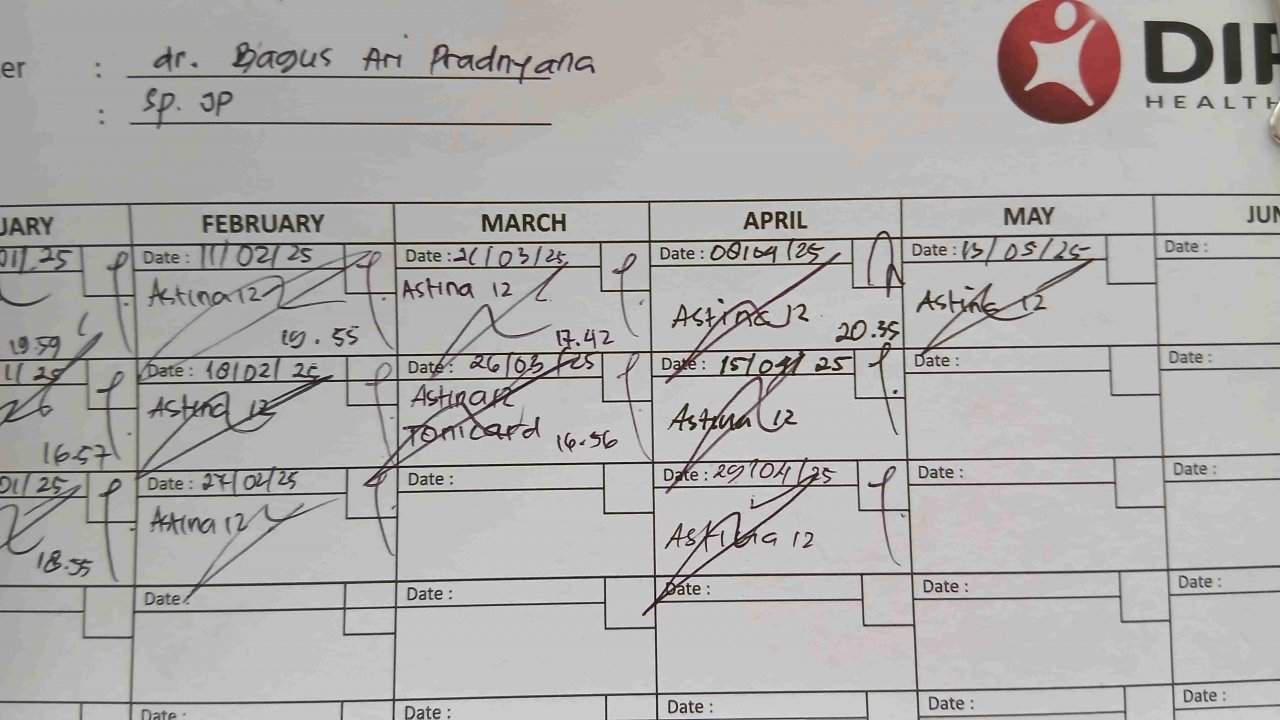 er : dr. Bagus Ari Pradnyana
: Sp. JP
DIP
HEALTH
UARY FEBRUARY MARCH APRIL MAY JUN
01/25 Date : 11/02/25 Date : 21/03/25 Date : 08/04/25 Date : 13/05/25 Date :
Astina 12 Astina 12 Astina 12 Astina 12
19.59 19.55 17.42 20.35
1/25 Date : 18/02/25 Date : 26/03/25 Date : 15/04/25 Date : Date :
26 Astina 12 Astina 12 Astina 12
Tonicard
16.57 16.56
01/25 Date : 27/02/25 Date : Date : 29/04/25 Date : Date :
Astina 12 Astina 12
18.55
Date : Date : Date : Date : Date :
Date : Date : Date : Date : Date :